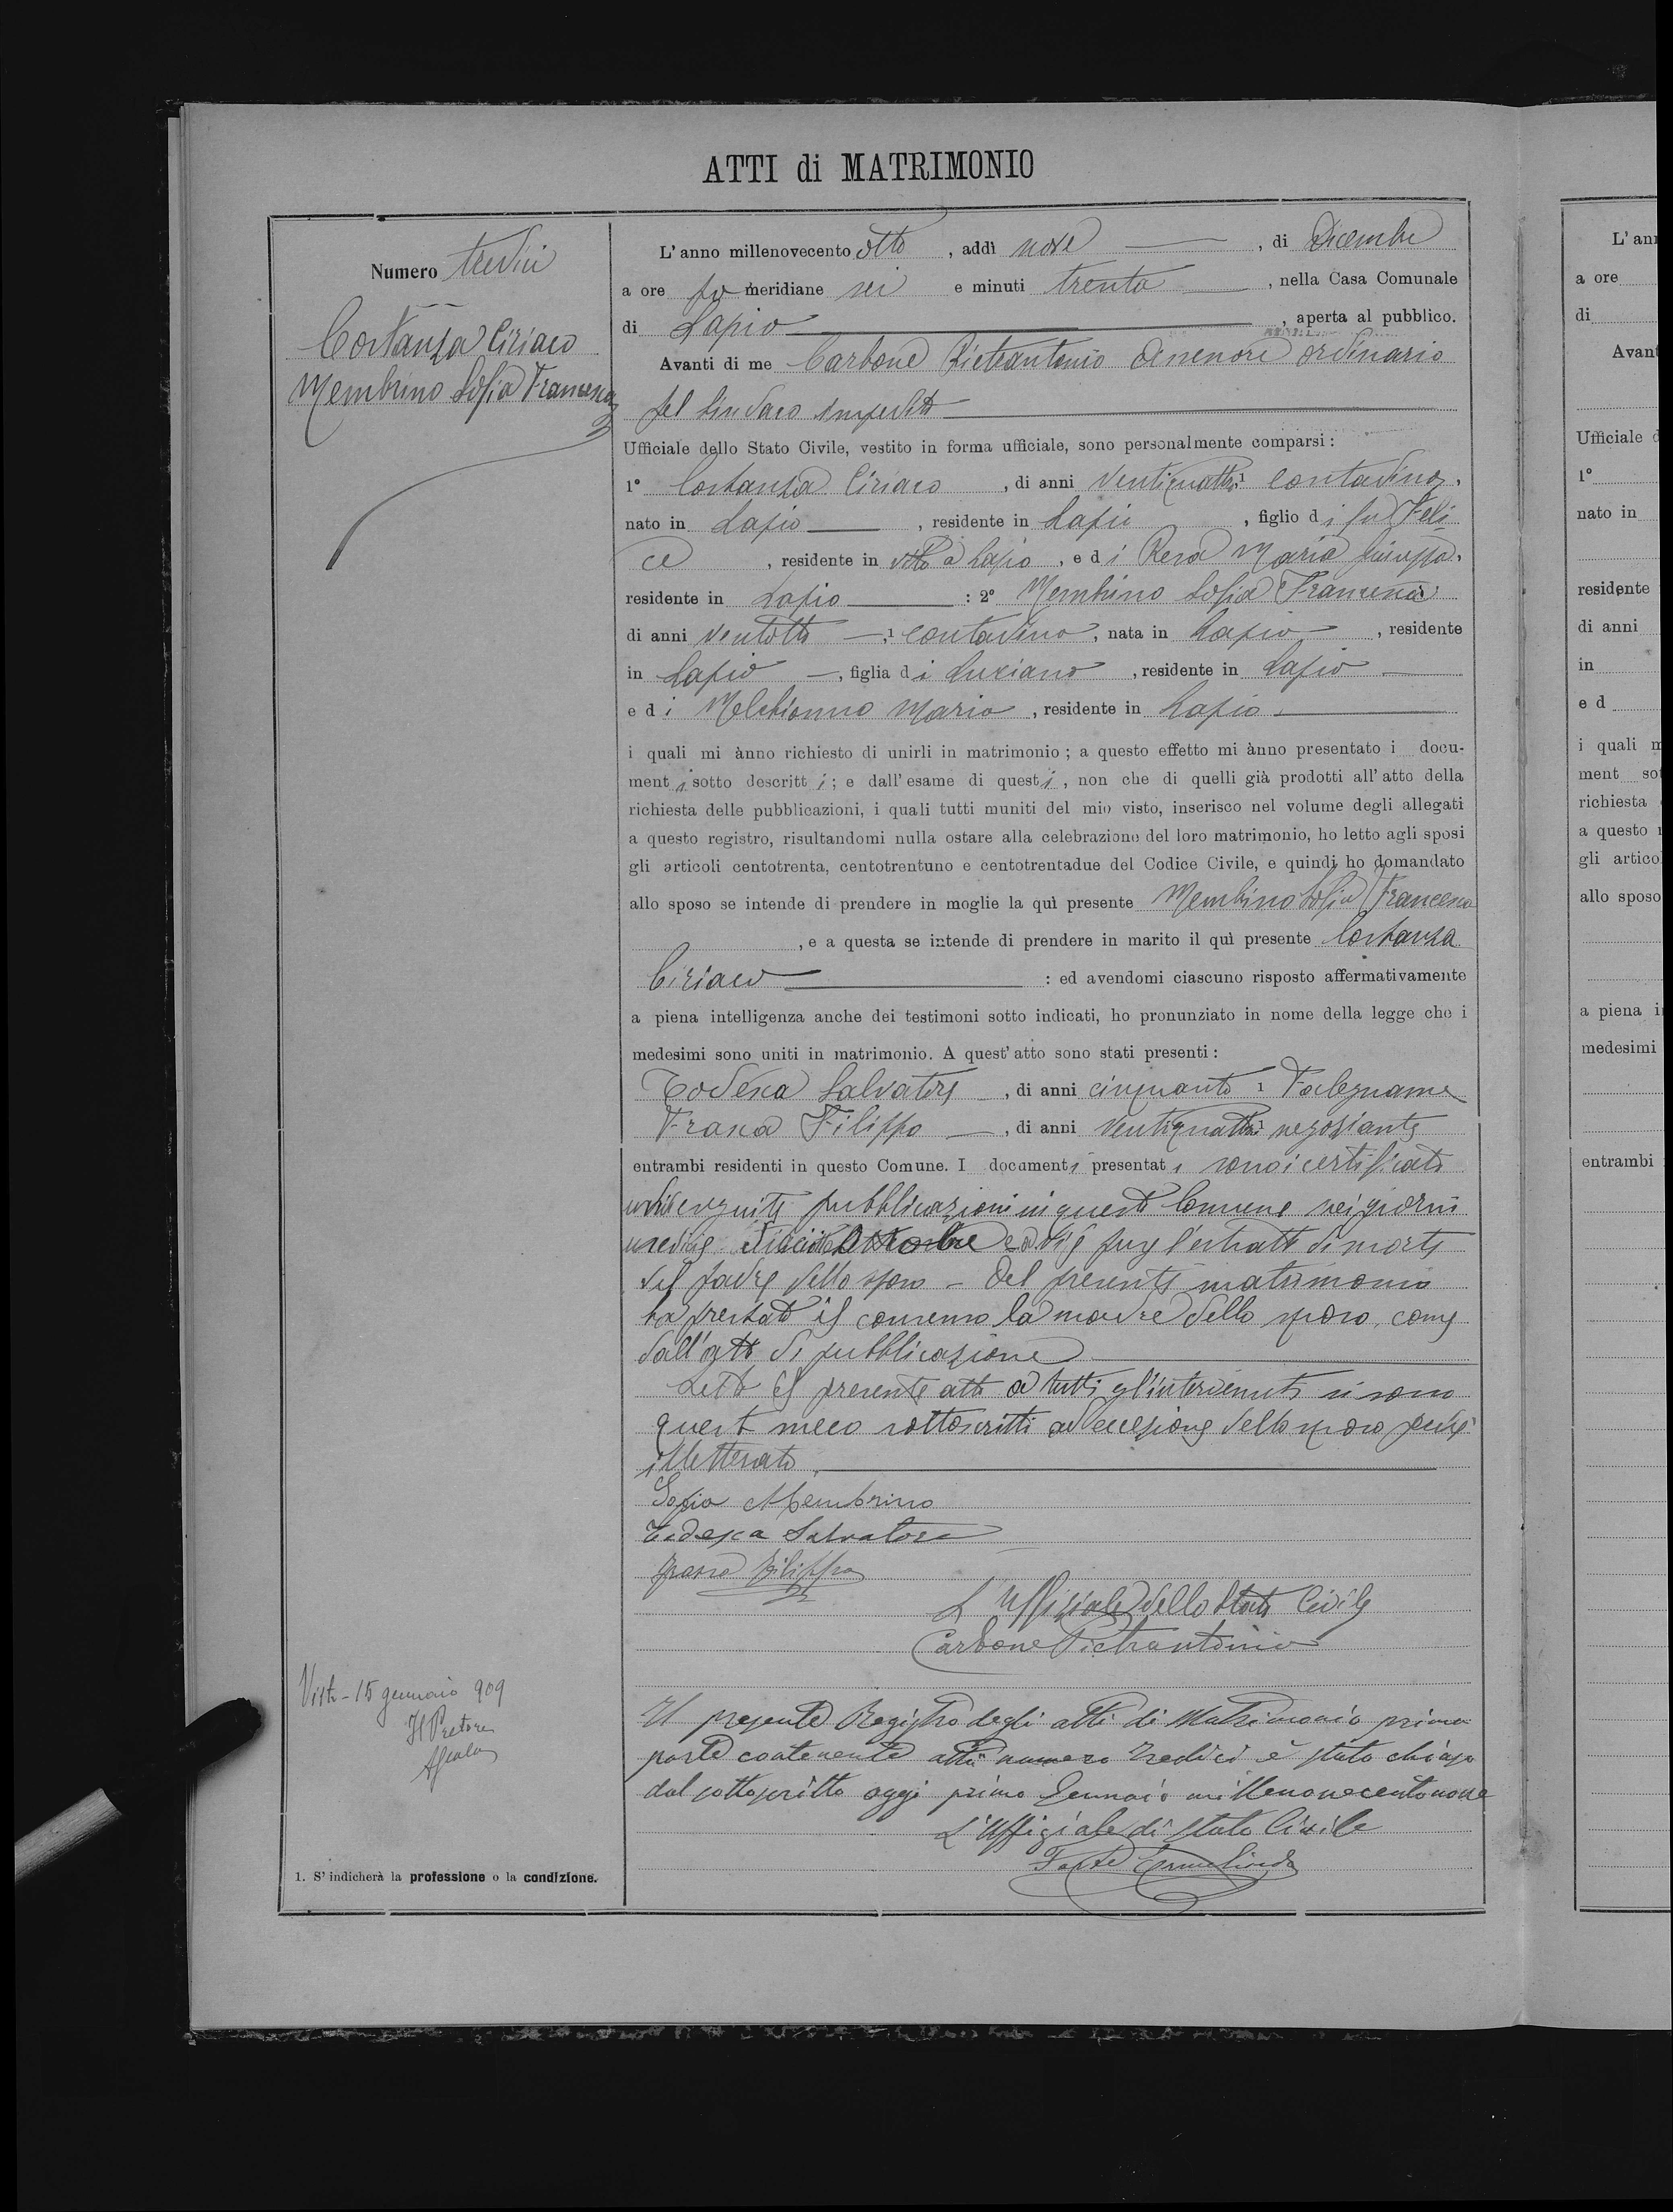 ATTI di MATRIMONIO
Numero tredici
Costanza Ciriaco
Membrino Sofia Francesca
L'anno millenovecento otto, addì nove, di Dicembre
a ore po meridiane sei e minuti trenta, nella Casa Comunale
di Lapio, aperta al pubblico.
Avanti di me Carbone Pietrantonio Assessore ordinario
pel Sindaco impedito
Ufficiale dello Stato Civile, vestito in forma ufficiale, sono personalmente comparsi:
1° Costanza Ciriaco, di anni ventiquattro 1 contadino,
nato in Lapio, residente in Lapio, figlio di fu Feli
ce, residente in vita a Lapio, e di Rera Maria Giuseppa,
residente in Lapio : 2° Membrino Sofia Francesca
di anni ventotto, 1 contadina, nata in Lapio, residente
in Lapio, figlia di Luciano, residente in Lapio
e di Melchionno Maria, residente in Lapio
i quali mi ànno richiesto di unirli in matrimonio; a questo effetto mi ànno presentato i docu-
menti sotto descritti; e dall'esame di questi, non che di quelli già prodotti all'atto della
richiesta delle pubblicazioni, i quali tutti muniti del mio visto, inserisco nel volume degli allegati
a questo registro, risultandomi nulla ostare alla celebrazione del loro matrimonio, ho letto agli sposi
gli articoli centotrenta, centotrentuno e centotrentadue del Codice Civile, e quindi ho domandato
allo sposo se intende di prendere in moglie la quì presente Membrino Sofia Francesca
, e a questa se intende di prendere in marito il quì presente Costanza
Ciriaco : ed avendomi ciascuno risposto affermativamente
a piena intelligenza anche dei testimoni sotto indicati, ho pronunziato in nome della legge che i
medesimi sono uniti in matrimonio. A quest'atto sono stati presenti:
Todesca Salvatore, di anni cinquanta 1 Falegname
Frasca Filippo, di anni ventiquattro 1 negoziante
entrambi residenti in questo Comune. I documenti presentati sono i certificati
eseguite pubblicazioni in questo Comune nei giorni
undici diciotto Ottobre e più l'estratto di morte
del padre dello sposo - Del presente matrimonio
ha prestato il consenso la madre dello sposo, come
dall'atto di pubblicazione
Letto il presente atto a tutti gl'intervenuti si sono
questi meco sottoscritti ad eccezione dello sposo perchè
illetterato
Sofia Membrino
Todesca Salvatore
Frasca Filippo
L'Uffiziale dello Stato Civile
Carbone Pietrantonio
Il presente Registro degli atti di Matrimonio prima
parte contenente atti numero tredici è stato chiuso
dal sottoscritto oggi primo Gennaio millenovecentonove
L'Uffiziale di Stato Civile
Forte Ermelindo
Visto - 15 gennaio 909
Il Pretore
1. S'indicherà la professione o la condizione.
L'an
a ore
di
Avant
Ufficiale d
1°
nato in
residente
di anni
in
e d
i quali m
ment so
richiesta
a questo r
gli artico
allo sposo
a piena i
medesimi
entrambi